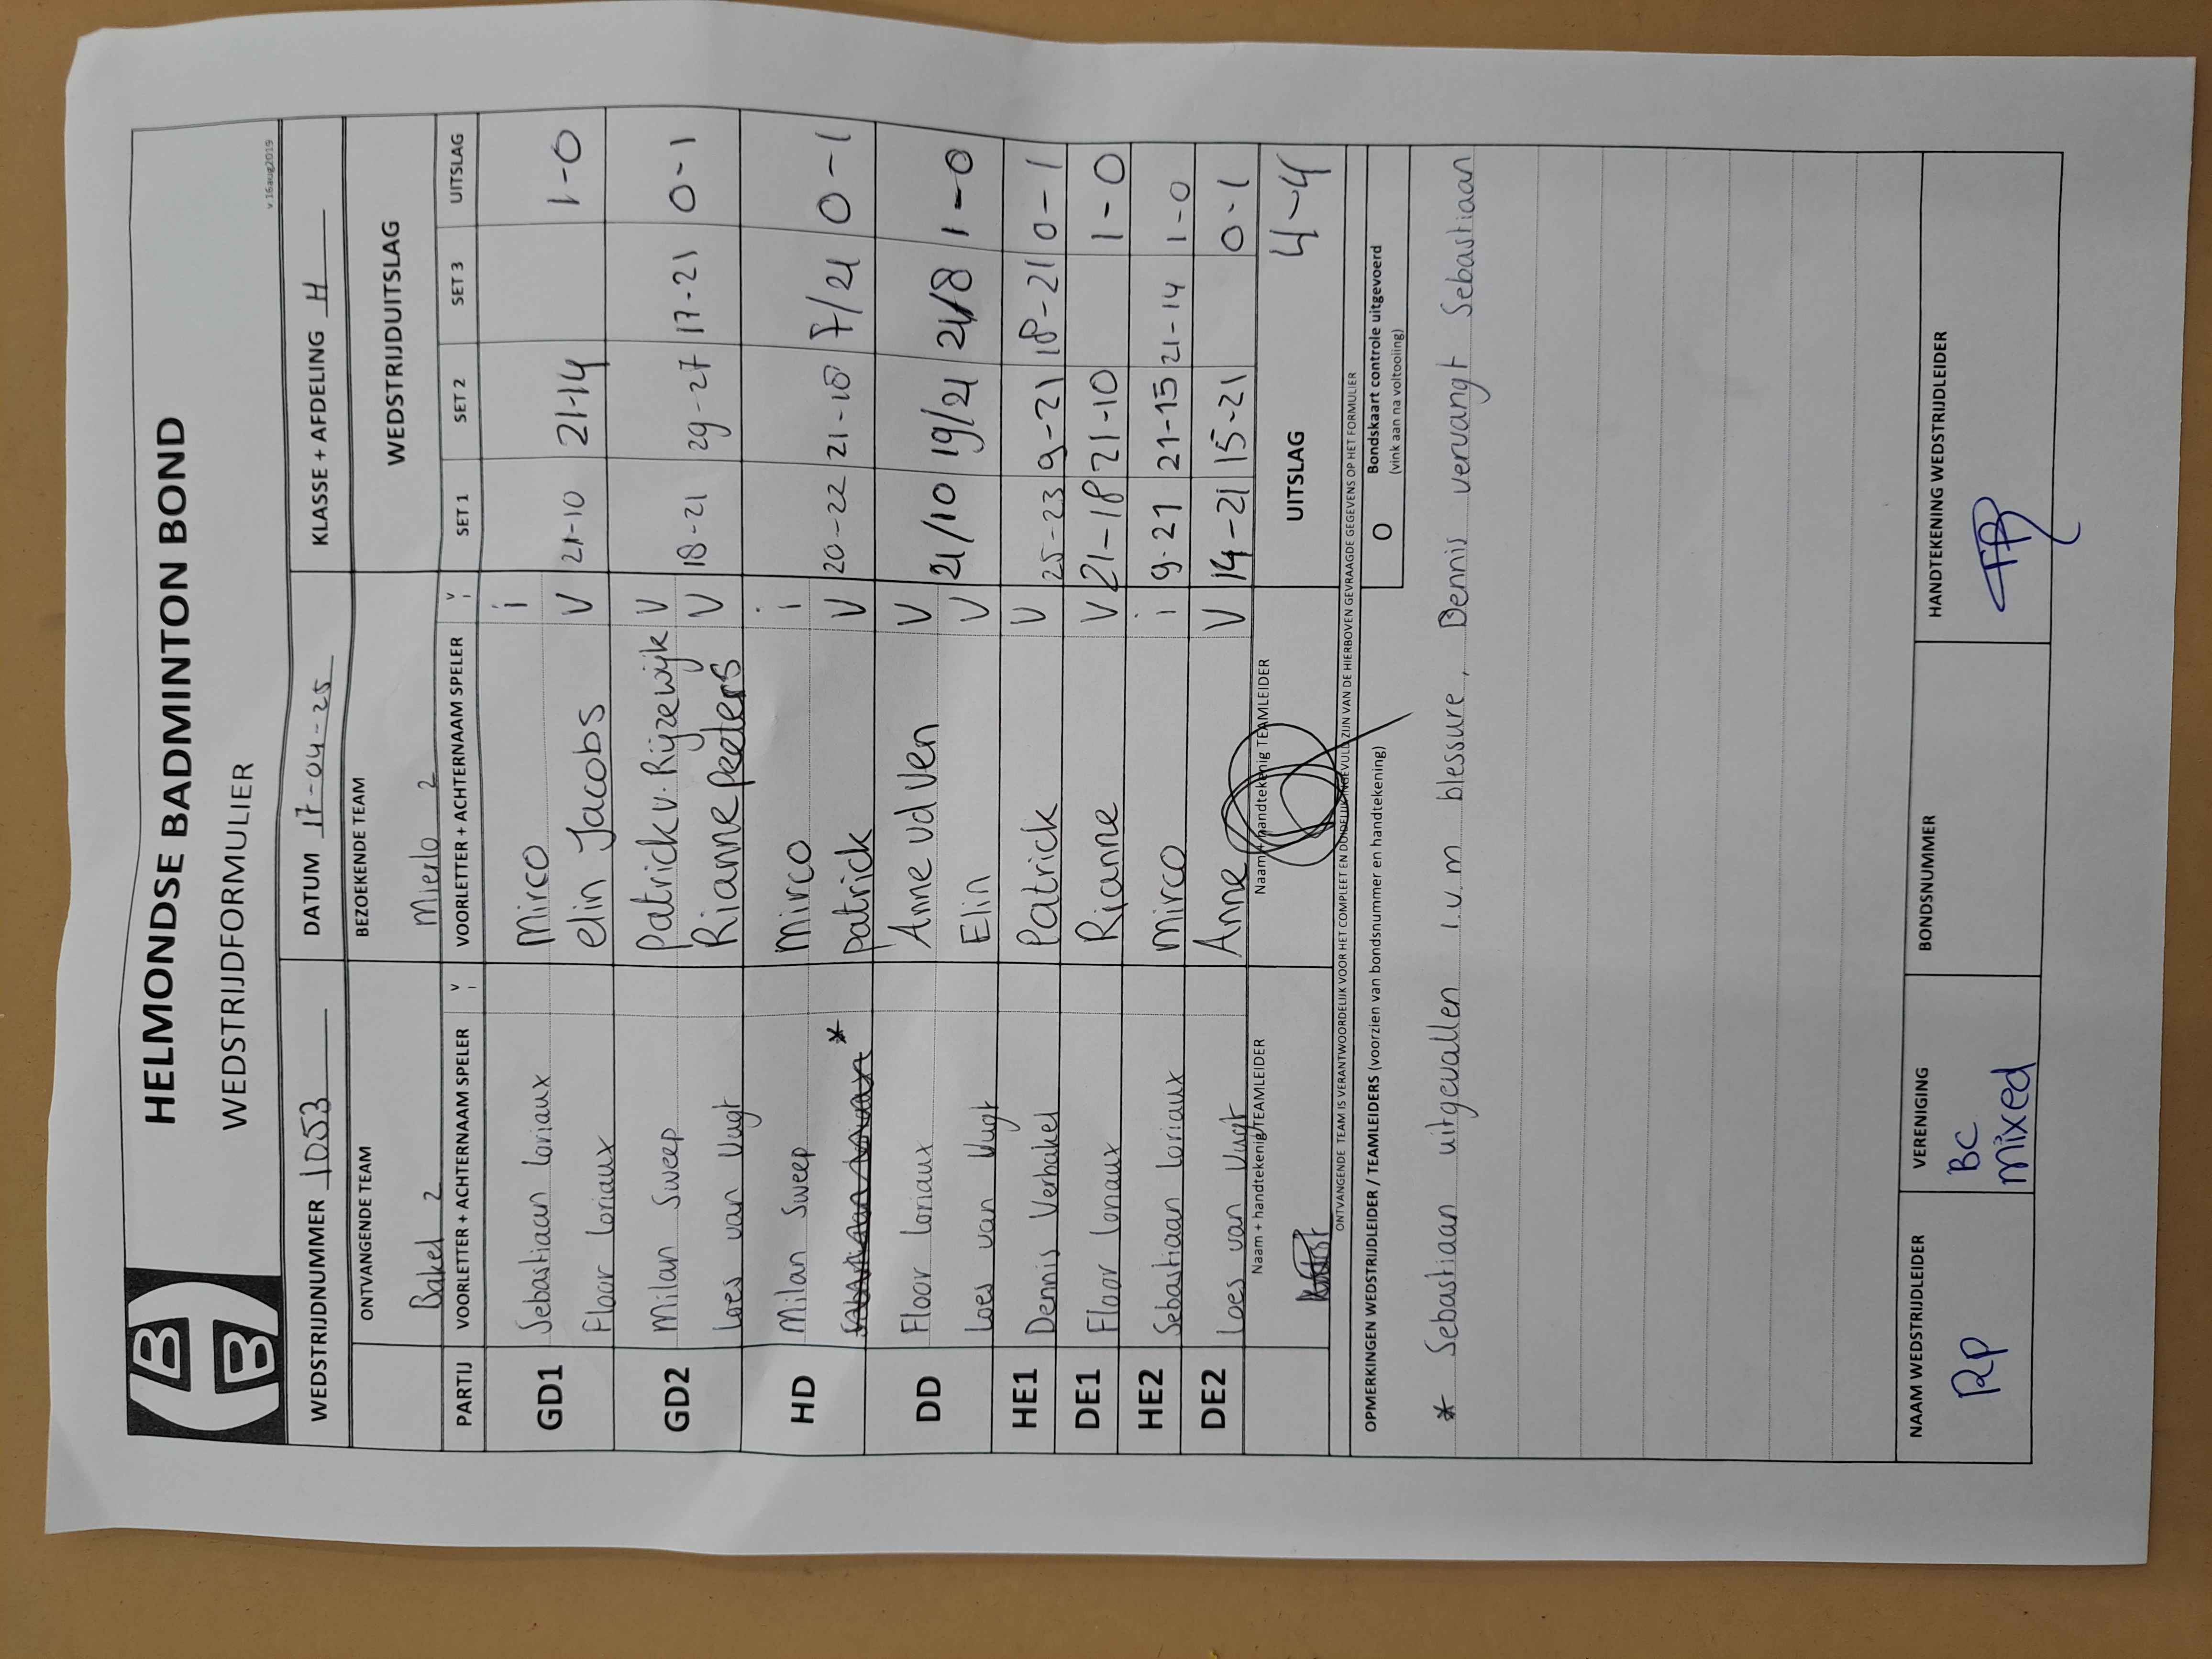 HELMONDSE BADMINTON BOND
WEDSTRIJDFORMULIER
v 16aug2019
WEDSTRIJDNUMMER 1053 DATUM 17-04-25 KLASSE + AFDELING H
ONTVANGENDE TEAM BEZOEKENDE TEAM WEDSTRIJDUITSLAG
Bakel 2 Mierlo 2
PARTIJ VOORLETTER + ACHTERNAAM SPELER V I VOORLETTER + ACHTERNAAM SPELER V I SET 1 SET 2 SET 3 UITSLAG
GD1 Sebastiaan Loriaux Mirco i
Floor Loriaux elin Jacobs V 21-10 21-14 1-0
GD2 Milan Sweep Patrick v. Rijzewijk V
Loes van Vugt Rianne Peeters V 18-21 29-27 17-21 0-1
HD Milan Sweep Mirco i
* Patrick V 20-22 21-18 7/21 0-1
DD Floor Loriaux Anne vd Ven V
Loes van Vugt Elin V 21/10 19/21 21/8 1-0
HE1 Dennis Verbakel Patrick V 25-23 9-21 18-21 0-1
DE1 Floor Loriaux Rianne V 21-18 21-10 1-0
HE2 Sebastiaan Loriaux Mirco i 9-21 21-15 21-14 1-0
DE2 Loes van Vugt Anne V 14-21 15-21 0-1
Naam + handtekenig TEAMLEIDER Naam + handtekenig TEAMLEIDER UITSLAG 4-4
ONTVANGENDE TEAM IS VERANTWOORDELIJK VOOR HET COMPLEET EN DUIDELIJK INGEVULD ZIJN VAN DE HIERBOVEN GEVRAAGDE GEGEVENS OP HET FORMULIER
OPMERKINGEN WEDSTRIJDLEIDER / TEAMLEIDERS (voorzien van bondsnummer en handtekening) O Bondskaart controle uitgevoerd
(vink aan na voltooiing)
* Sebastiaan uitgevallen i.v.m blessure, Dennis vervangt Sebastiaan
NAAM WEDSTRIJDLEIDER VERENIGING BONDSNUMMER HANDTEKENING WEDSTRIJDLEIDER
RP BC
mixed